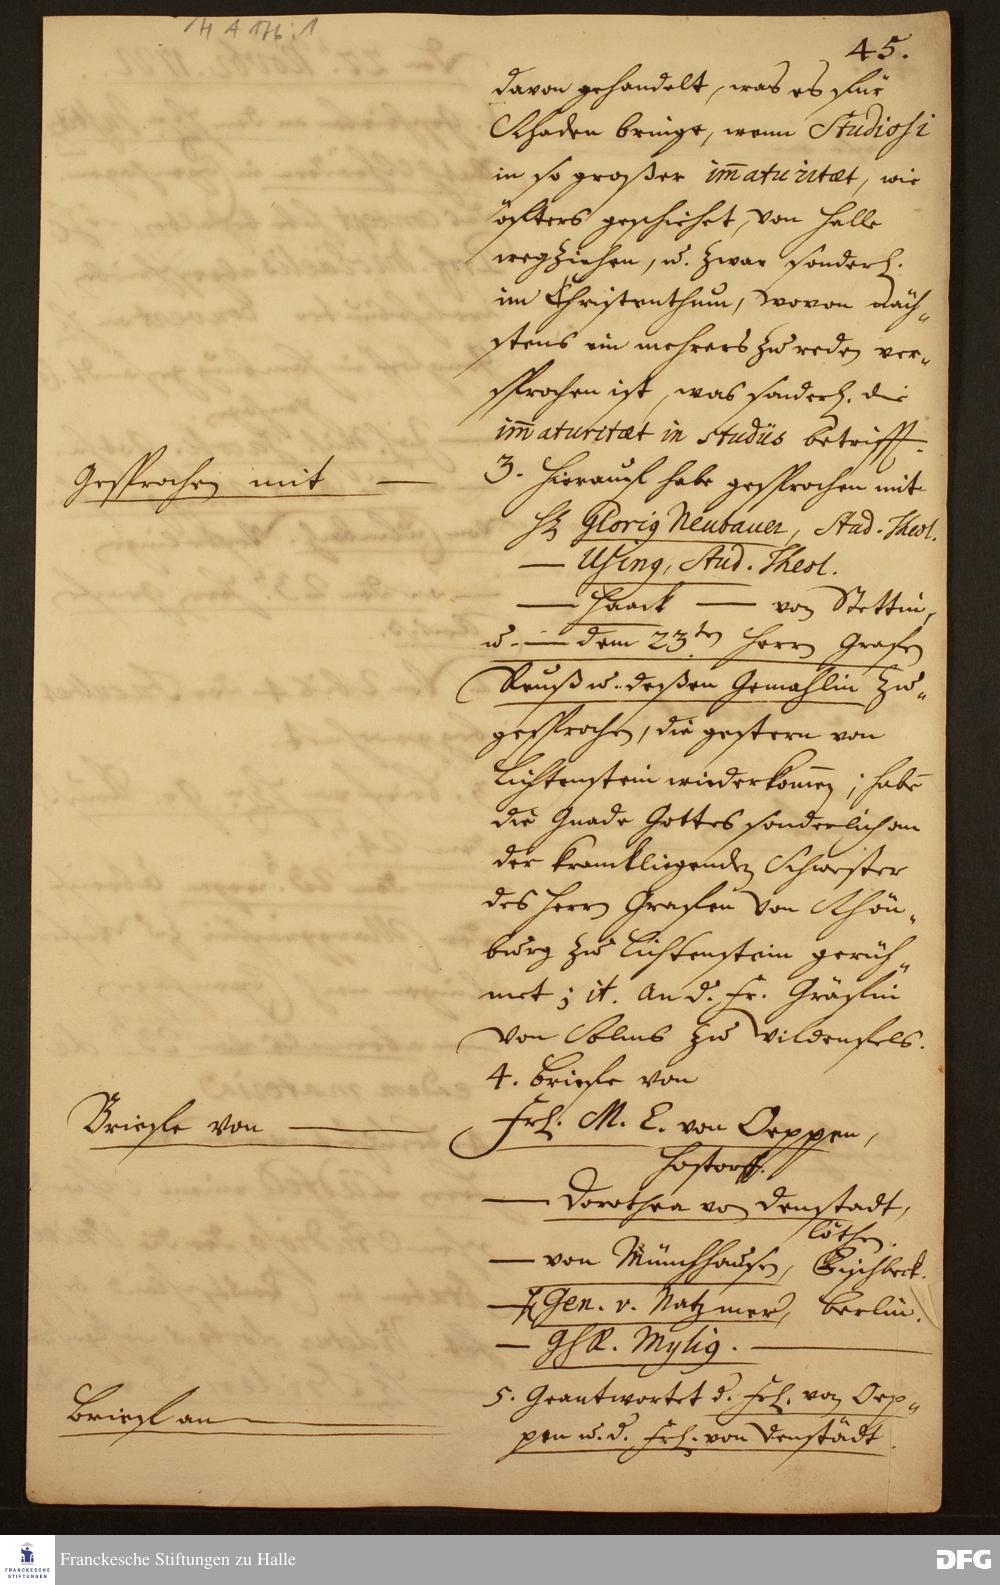 H A 176:1
45.
davon gehandelt, was es für
Schaden bringe, wenn Studiosi
in so großer im̅aturitæt, wie
öfters geschiehet, von Halle
wegziehen, u. zwar sonderl.
im Christenthum, wovon näch„
stens ein mehrers zu reden ver„
sprochen ist, was sonderl. die
im̅aturitæt in studiis betrifft.
Gesprochen mit —
3. Hierauf habe gesprochen mit
H. Glorig Neubauer, Stud. Theol.
— Using, Stud. Theol.
— Haack — von Stettin,
u. — dem 23ten Herrn Grafen
Reuß u. deßen Gemahlin zu„
gesprochen, die gestern von
Lichtenstein wiederkom̅en; habe̅
die Gnade Gottes sonderlich an
der krankliegenden Schwester
des Herrn Grafen von Schön„
burg zu Lichtenstein gerüh„
met; it. an d. Fr. Gräfin
von Solms zu Wildenfels.
4. Briefe von
Briefe von —
Frl. M. E. von Oeppen,
Hastorff.
— Dorothea von Denstädt,
Cöthen.
— von Münchhausen, Fischbeck.
— H. Gen. v. Natzmer, Berlin.
— GhR. Mylig. —
Brief an —
5. Geantwortet d. Frl. von Oep„
pen u. d. Frl. von Denstädt.
FRANCKESCHE
STIFTUNGEN
Franckesche Stiftungen zu Halle
DFG